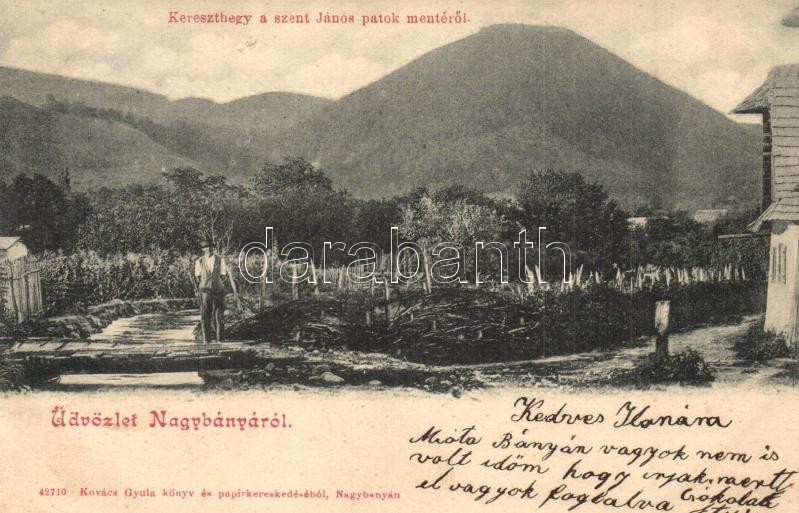 Kereszthegy a szent János patok mentéről.
darabanth.com
Üdvözlet Nagybányáról.
42710 Kovács Gyula könyv és papírkereskedéséből, Nagybányán
Kedves Ilonára
Mióta Bányán vagyok nem is
volt időm hogy irjak. mert
el vagyok foglalva Csókolat